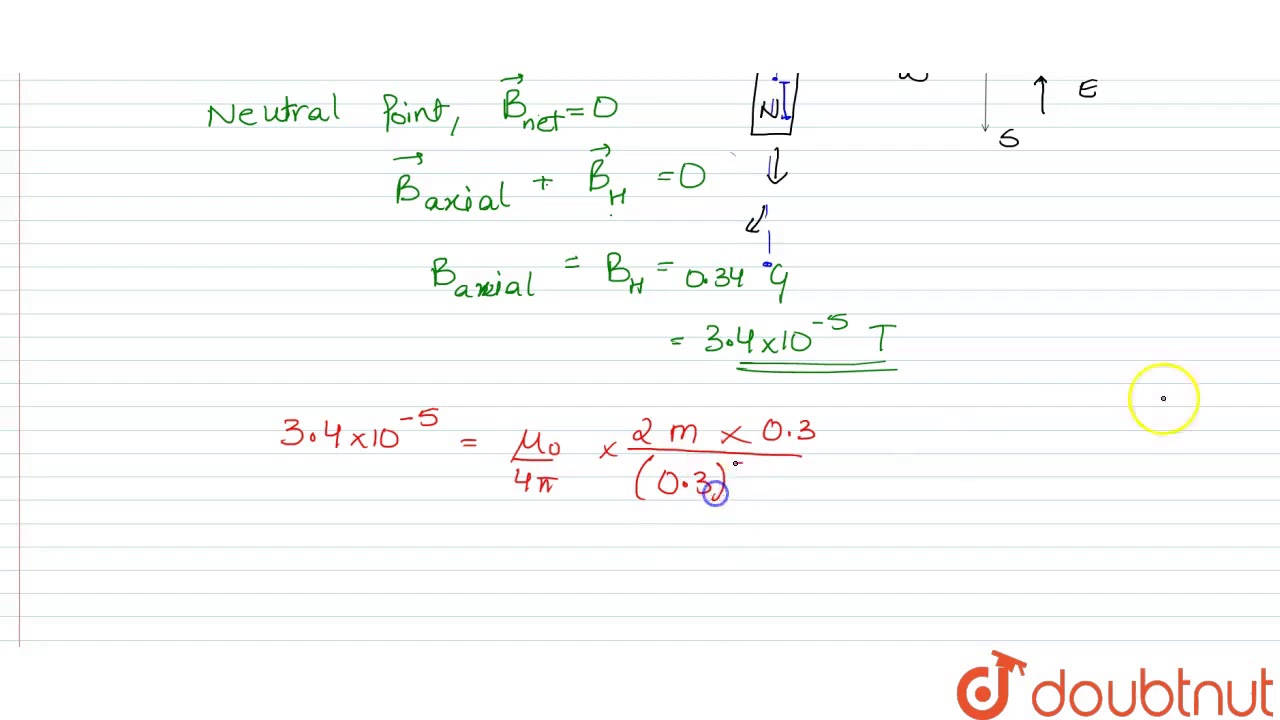 W
E
Neutral Point, B⃗net = 0
N
S
B⃗axial + B⃗H = 0
Baxial = BH = 0.34 G
= 3.4×10⁻⁵ T
3.4×10⁻⁵ = μ0/4π × 2 m × 0.3/(0.3)
doubtnut